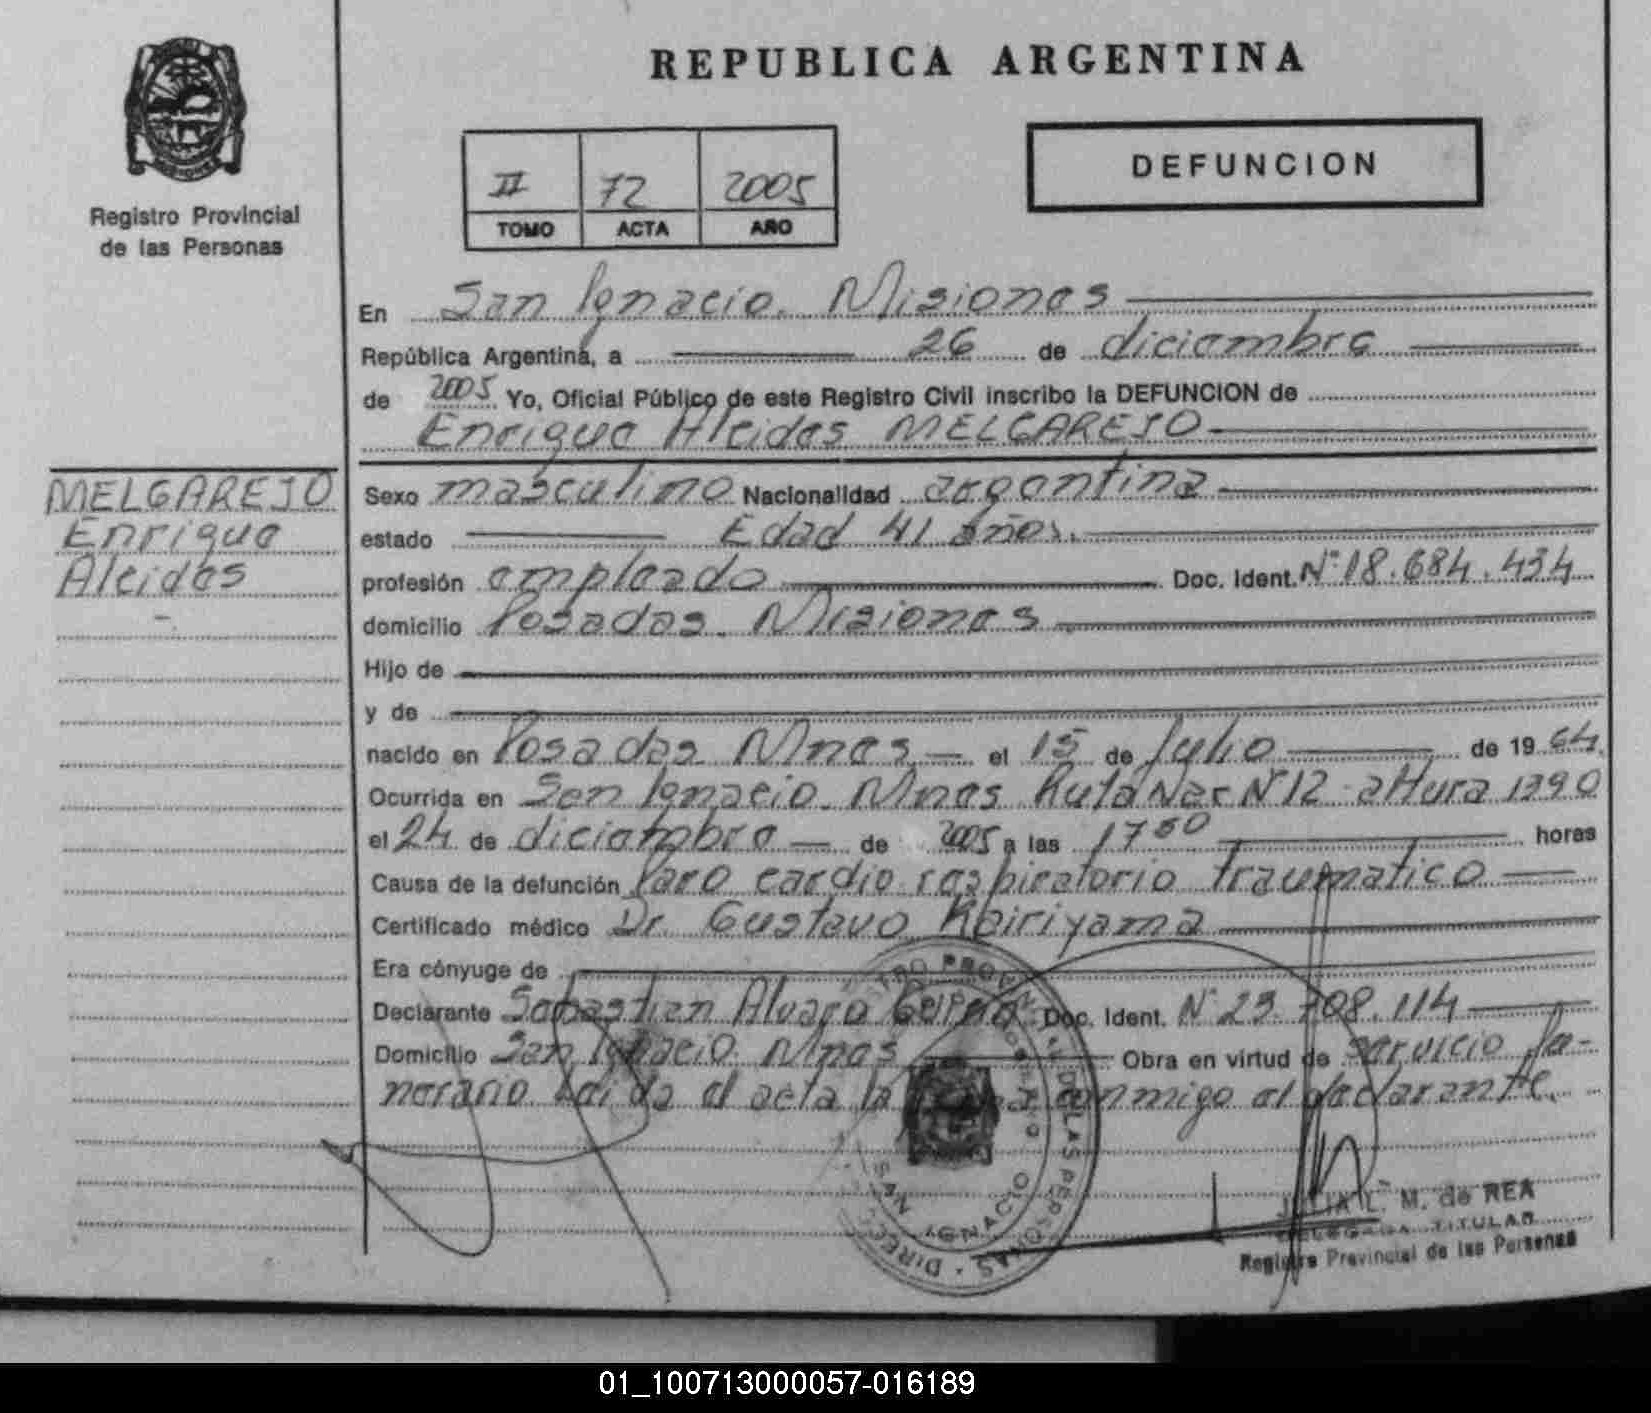 REPUBLICA ARGENTINA
DEFUNCION
II 72 2005
TOMO ACTA AÑO
Registro Provincial
de las Personas
En San Ignacio. Misiones
República Argentina, a 26 de diciembre
de 2005 Yo, Oficial Público de este Registro Civil inscribo la DEFUNCION de
Enrique Alcides MELGAREJO
MELGAREJO
Enrique
Alcides
Sexo masculino Nacionalidad argentina
estado Edad 41 años.
profesión empleado Doc. Ident. N° 18.684.434
domicilio Posadas. Misiones
Hijo de
y de
nacido en Posadas Mnes el 15 de Julio de 1964
Ocurrida en San Ignacio. Mnes Ruta Nac N° 12 altura 1390
el 24 de diciembre de 2005 a las 17 50 horas
Causa de la defunción Paro cardio respiratorio traumatico
Certificado médico Dr. Gustavo Kairiyama
Era cónyuge de
Declarante Sebastian Alvaro Doc. Ident. N° 23.708.114
Domicilio San Ignacio. Mnes Obra en virtud de servicio fu-
nerario Leida el acta la firma conmigo el declarante.
SAN IGNACIO
JULIA L. M. de REA
DELEGADA TITULAR
Registro Provincial de las Personas
01_100713000057-016189